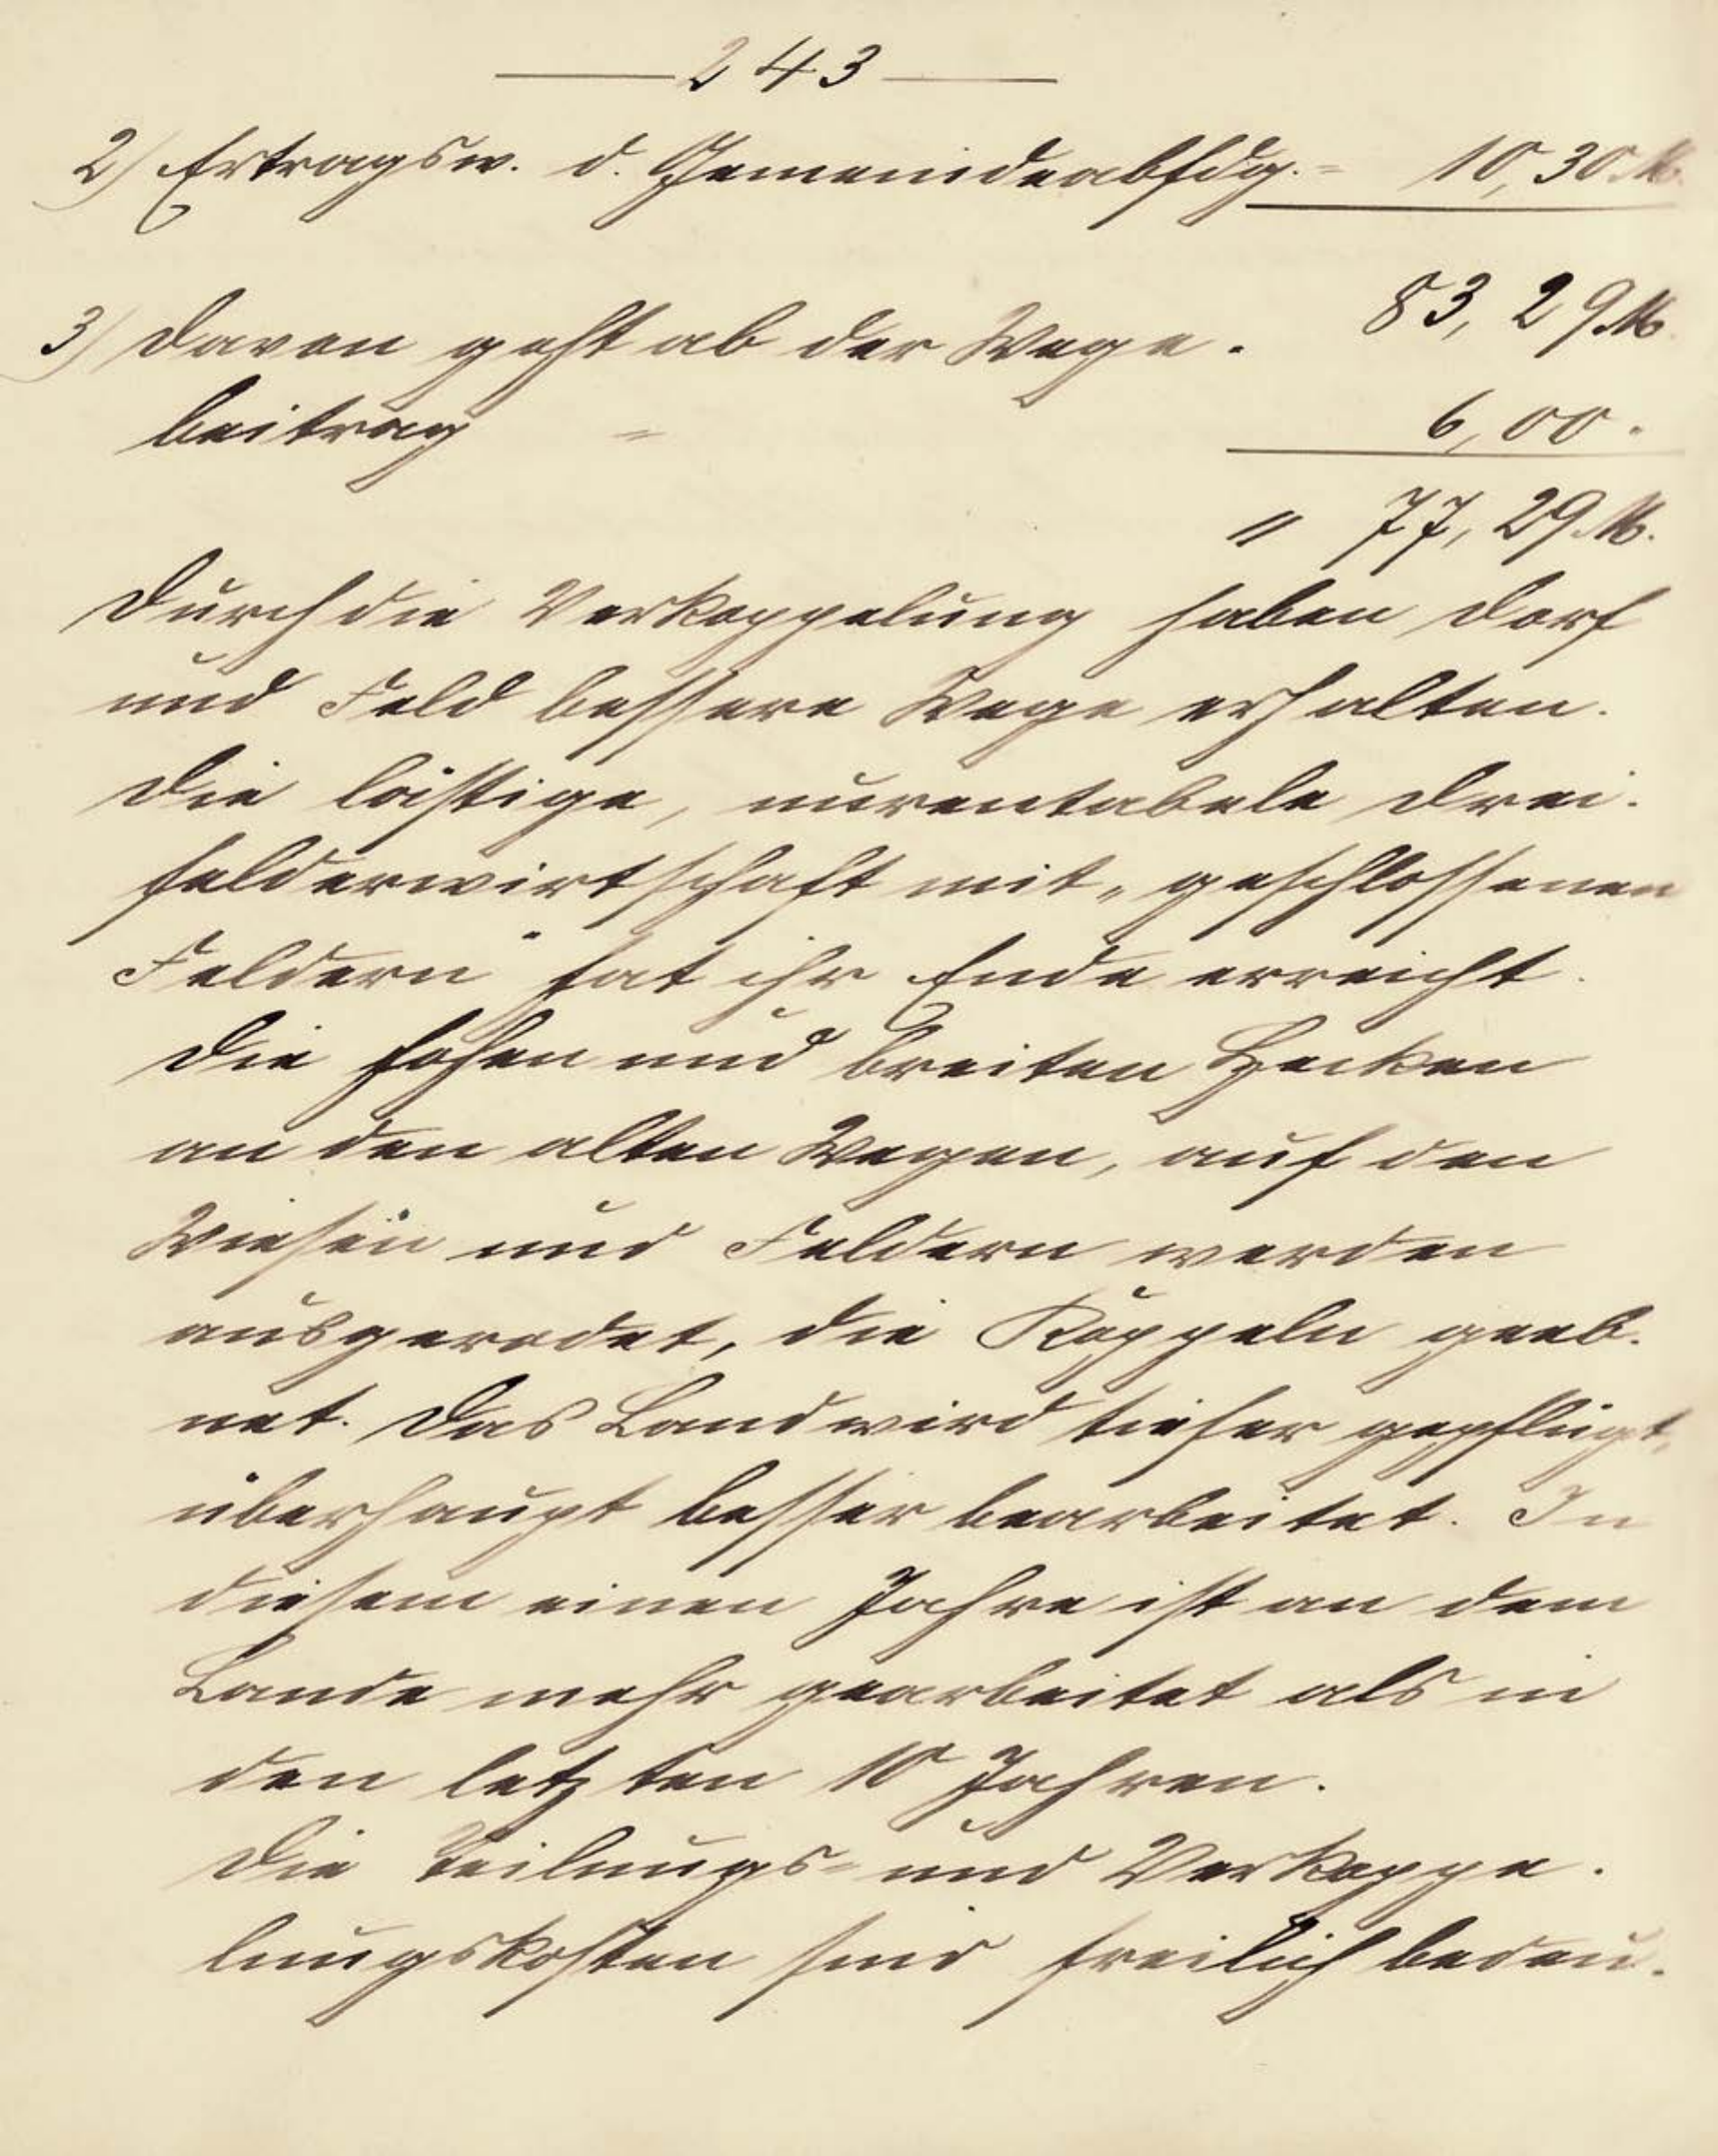 243
2) Ertragsw. d. Gemeindeabfdg. = 10,30 M.
83,29 M.
3) Davon geht ab der Wege-
beitrag = 6,00.
" 77,29 M.
Durch die Verkoppelung haben Dorf
und Feld bessere Wege erhalten.
Die lästige, unrentabele Drei-
felderwirtschaft mit „geschlossenen
Feldern" hat ihr Ende erreicht.
Die hohen und breiten Hecken
an den alten Wegen, auf den
Wiesen und Feldern werden
ausgerodet, die Koppeln geeb-
net. Das Land wird tiefer gepflügt,
überhaupt besser bearbeitet. In
diesem einen Jahre ist an dem
Lande mehr gearbeitet als in
den letzten 10 Jahren.
Die Teilungs- und Verkoppe-
lungskosten sind freilich bedeu-